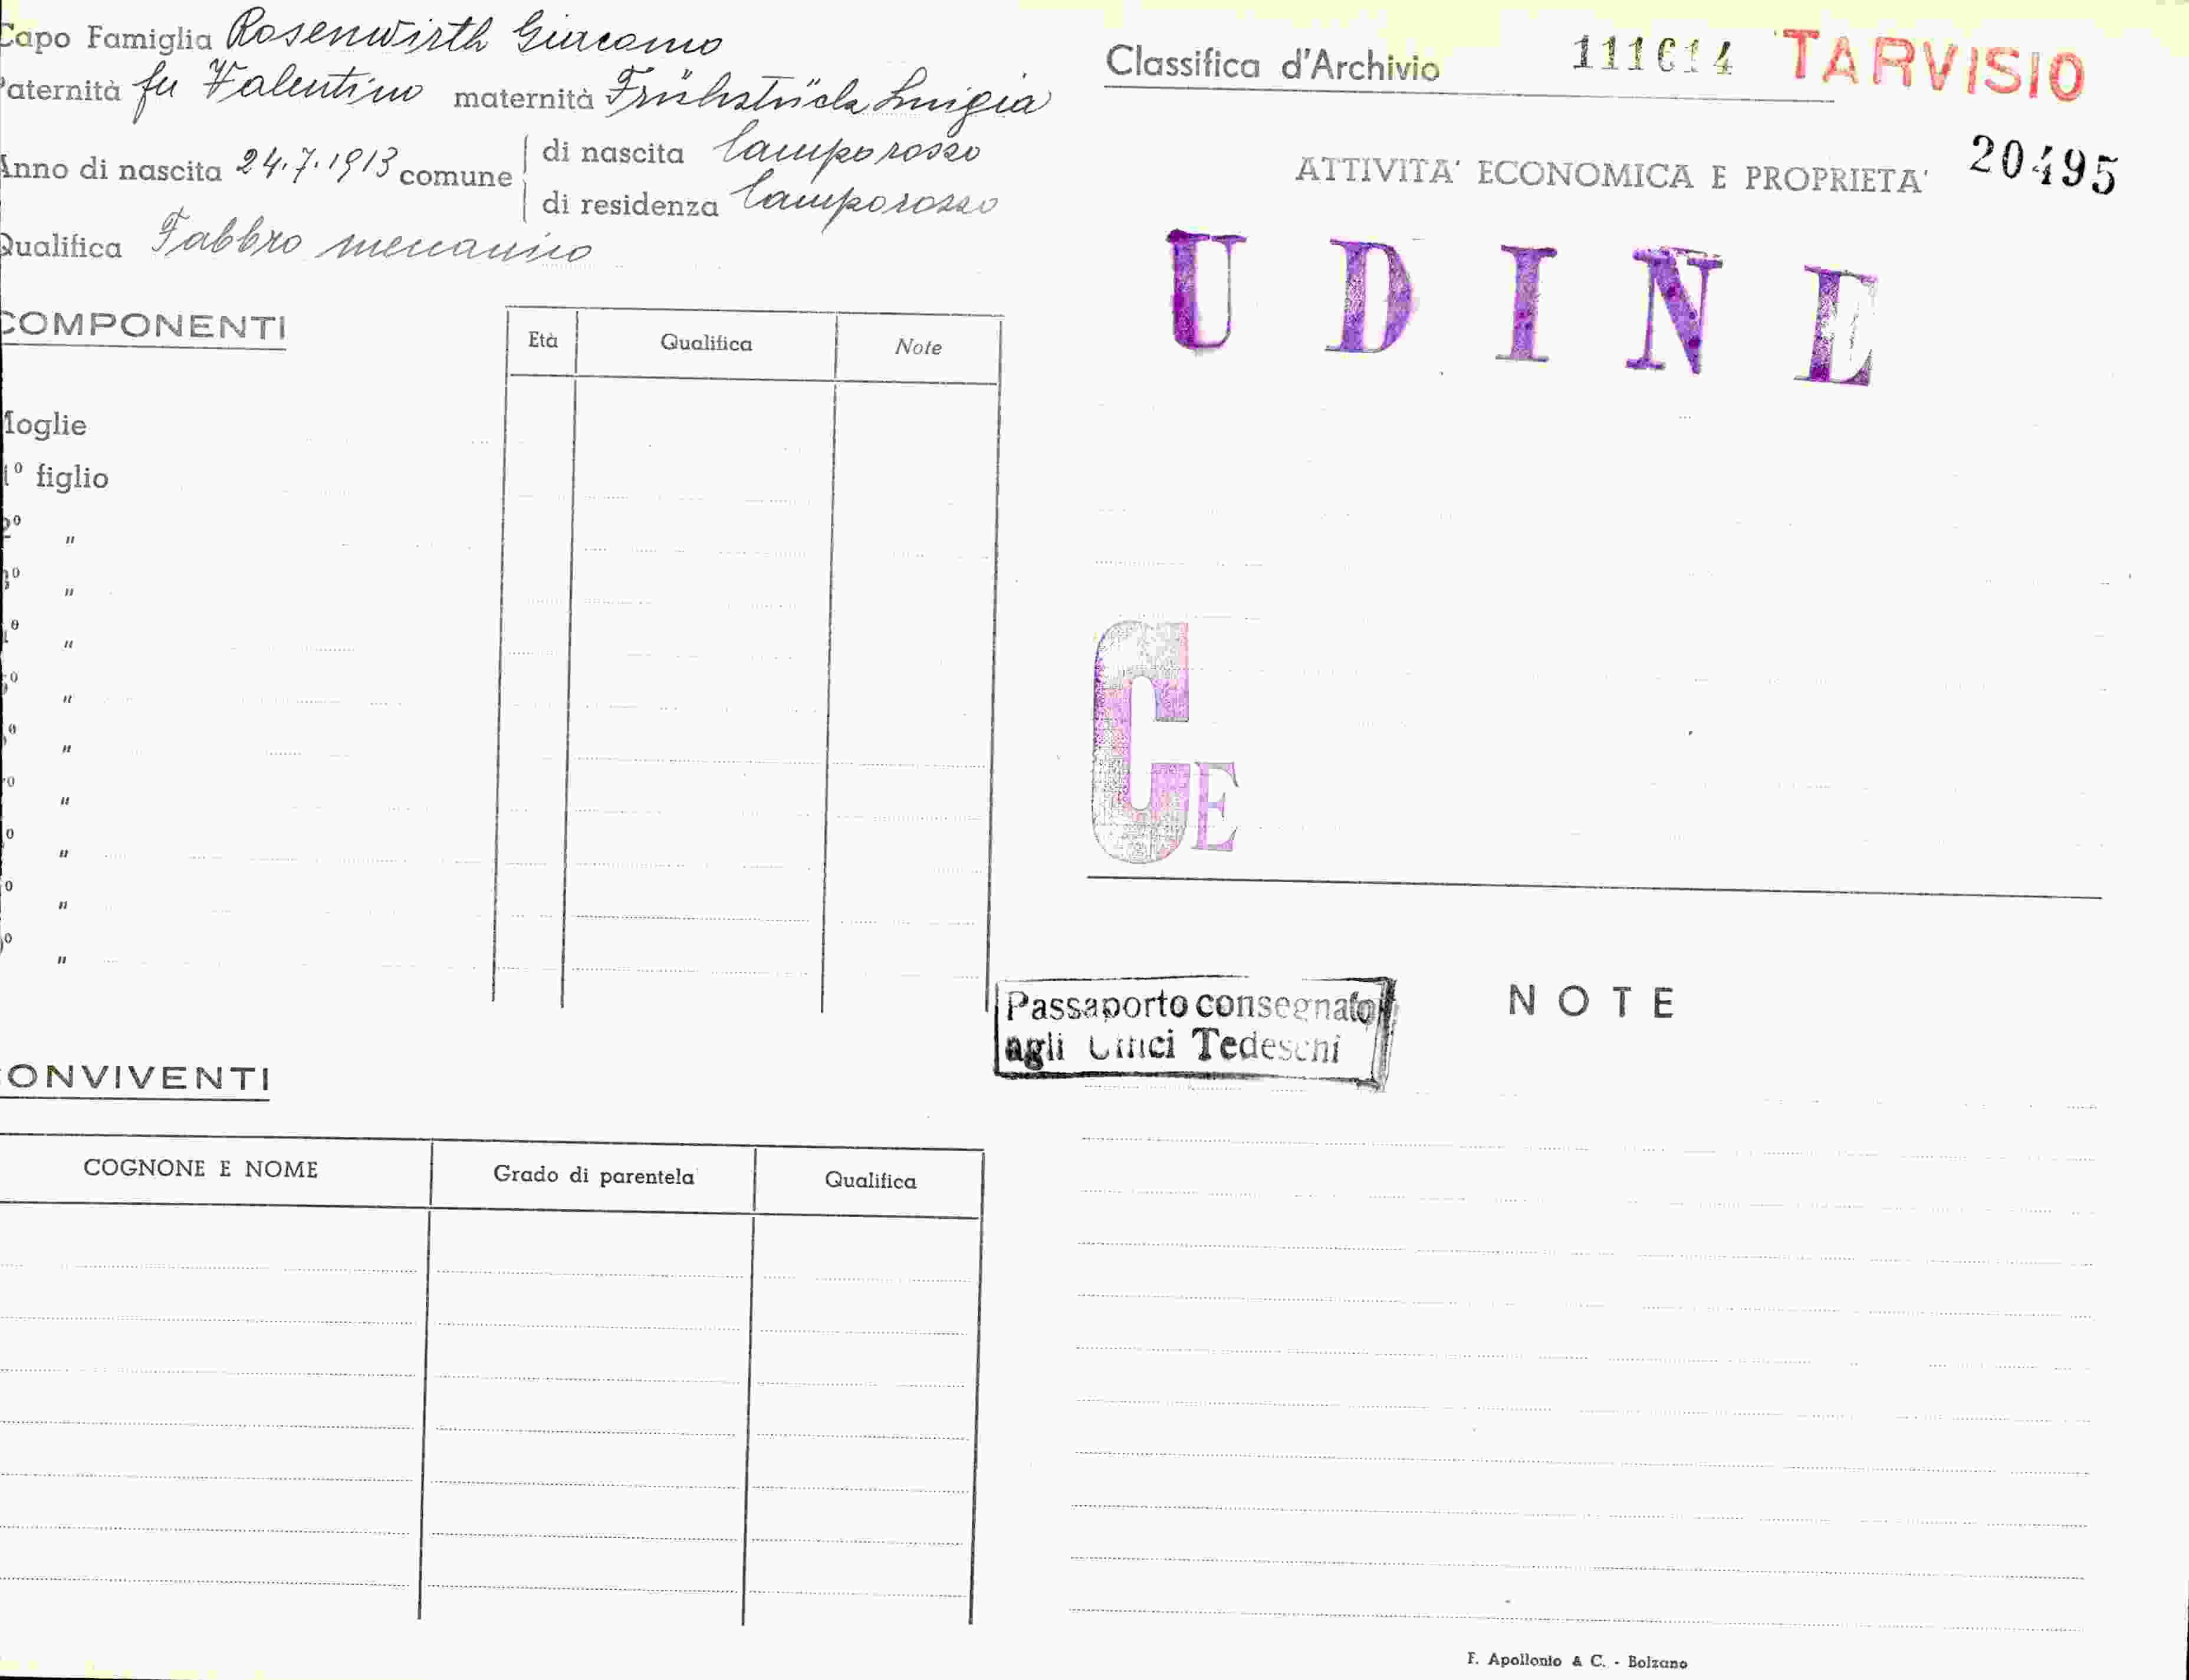 Capo Famiglia Rosenwirth Giacomo
Paternità fu Valentino maternità Frühstück Luigia
Anno di nascita 24.7.1913 comune di nascita Camporosso
di residenza Camporosso
Qualifica Fabbro meccanico
COMPONENTI
Età Qualifica Note
Moglie
1º figlio
2º "
3º "
4º "
5º "
º "
º "
º "
º "
º "
CONVIVENTI
COGNONE E NOME Grado di parentela Qualifica
Classifica d'Archivio 111614 TARVISIO
20495
ATTIVITA' ECONOMICA E PROPRIETA'
UDINE
CE
Passaporto consegnato
agli Uffici Tedeschi
NOTE
F. Apollonio & C. - Bolzano